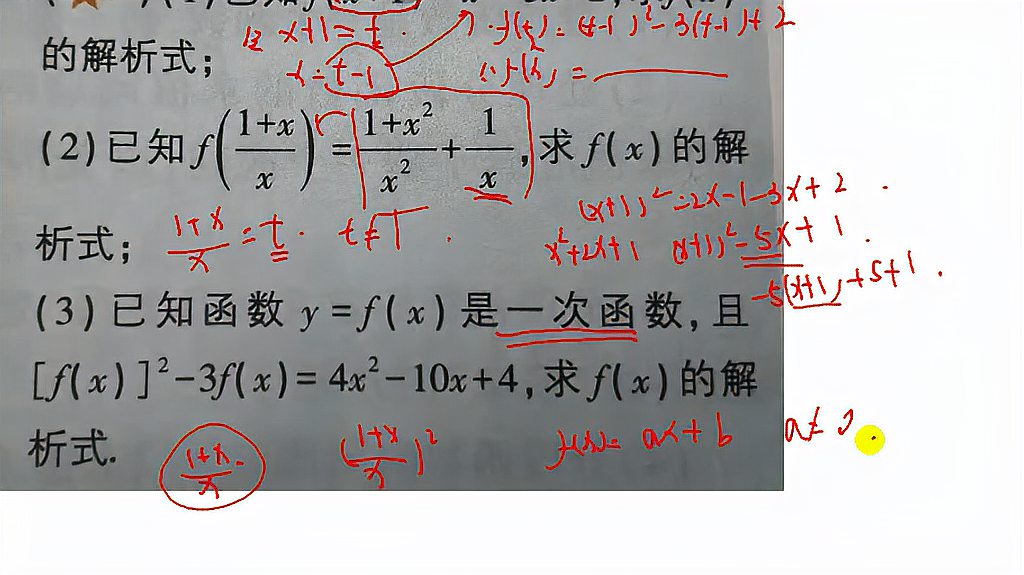 的解析式;
x+1=t. f(t)=(t-1)²-3(t-1)+2
x=t-1 ∴f(x)=
(2)已知f((1+x)/x)=(1+x²)/x²+1/x,求f(x)的解
析式;
(1+x)/x=t. t≠1.
(x+1)²-2x-1-3x+2
x²+2x+1 (x+1)²-5x+1.
-5(x+1)+5+1.
(3)已知函数y=f(x)是一次函数,且
[f(x)]²-3f(x)=4x²-10x+4,求f(x)的解
析式.
(1+x)/x ((1+x)/x)² f(x)=ax+b a≠0